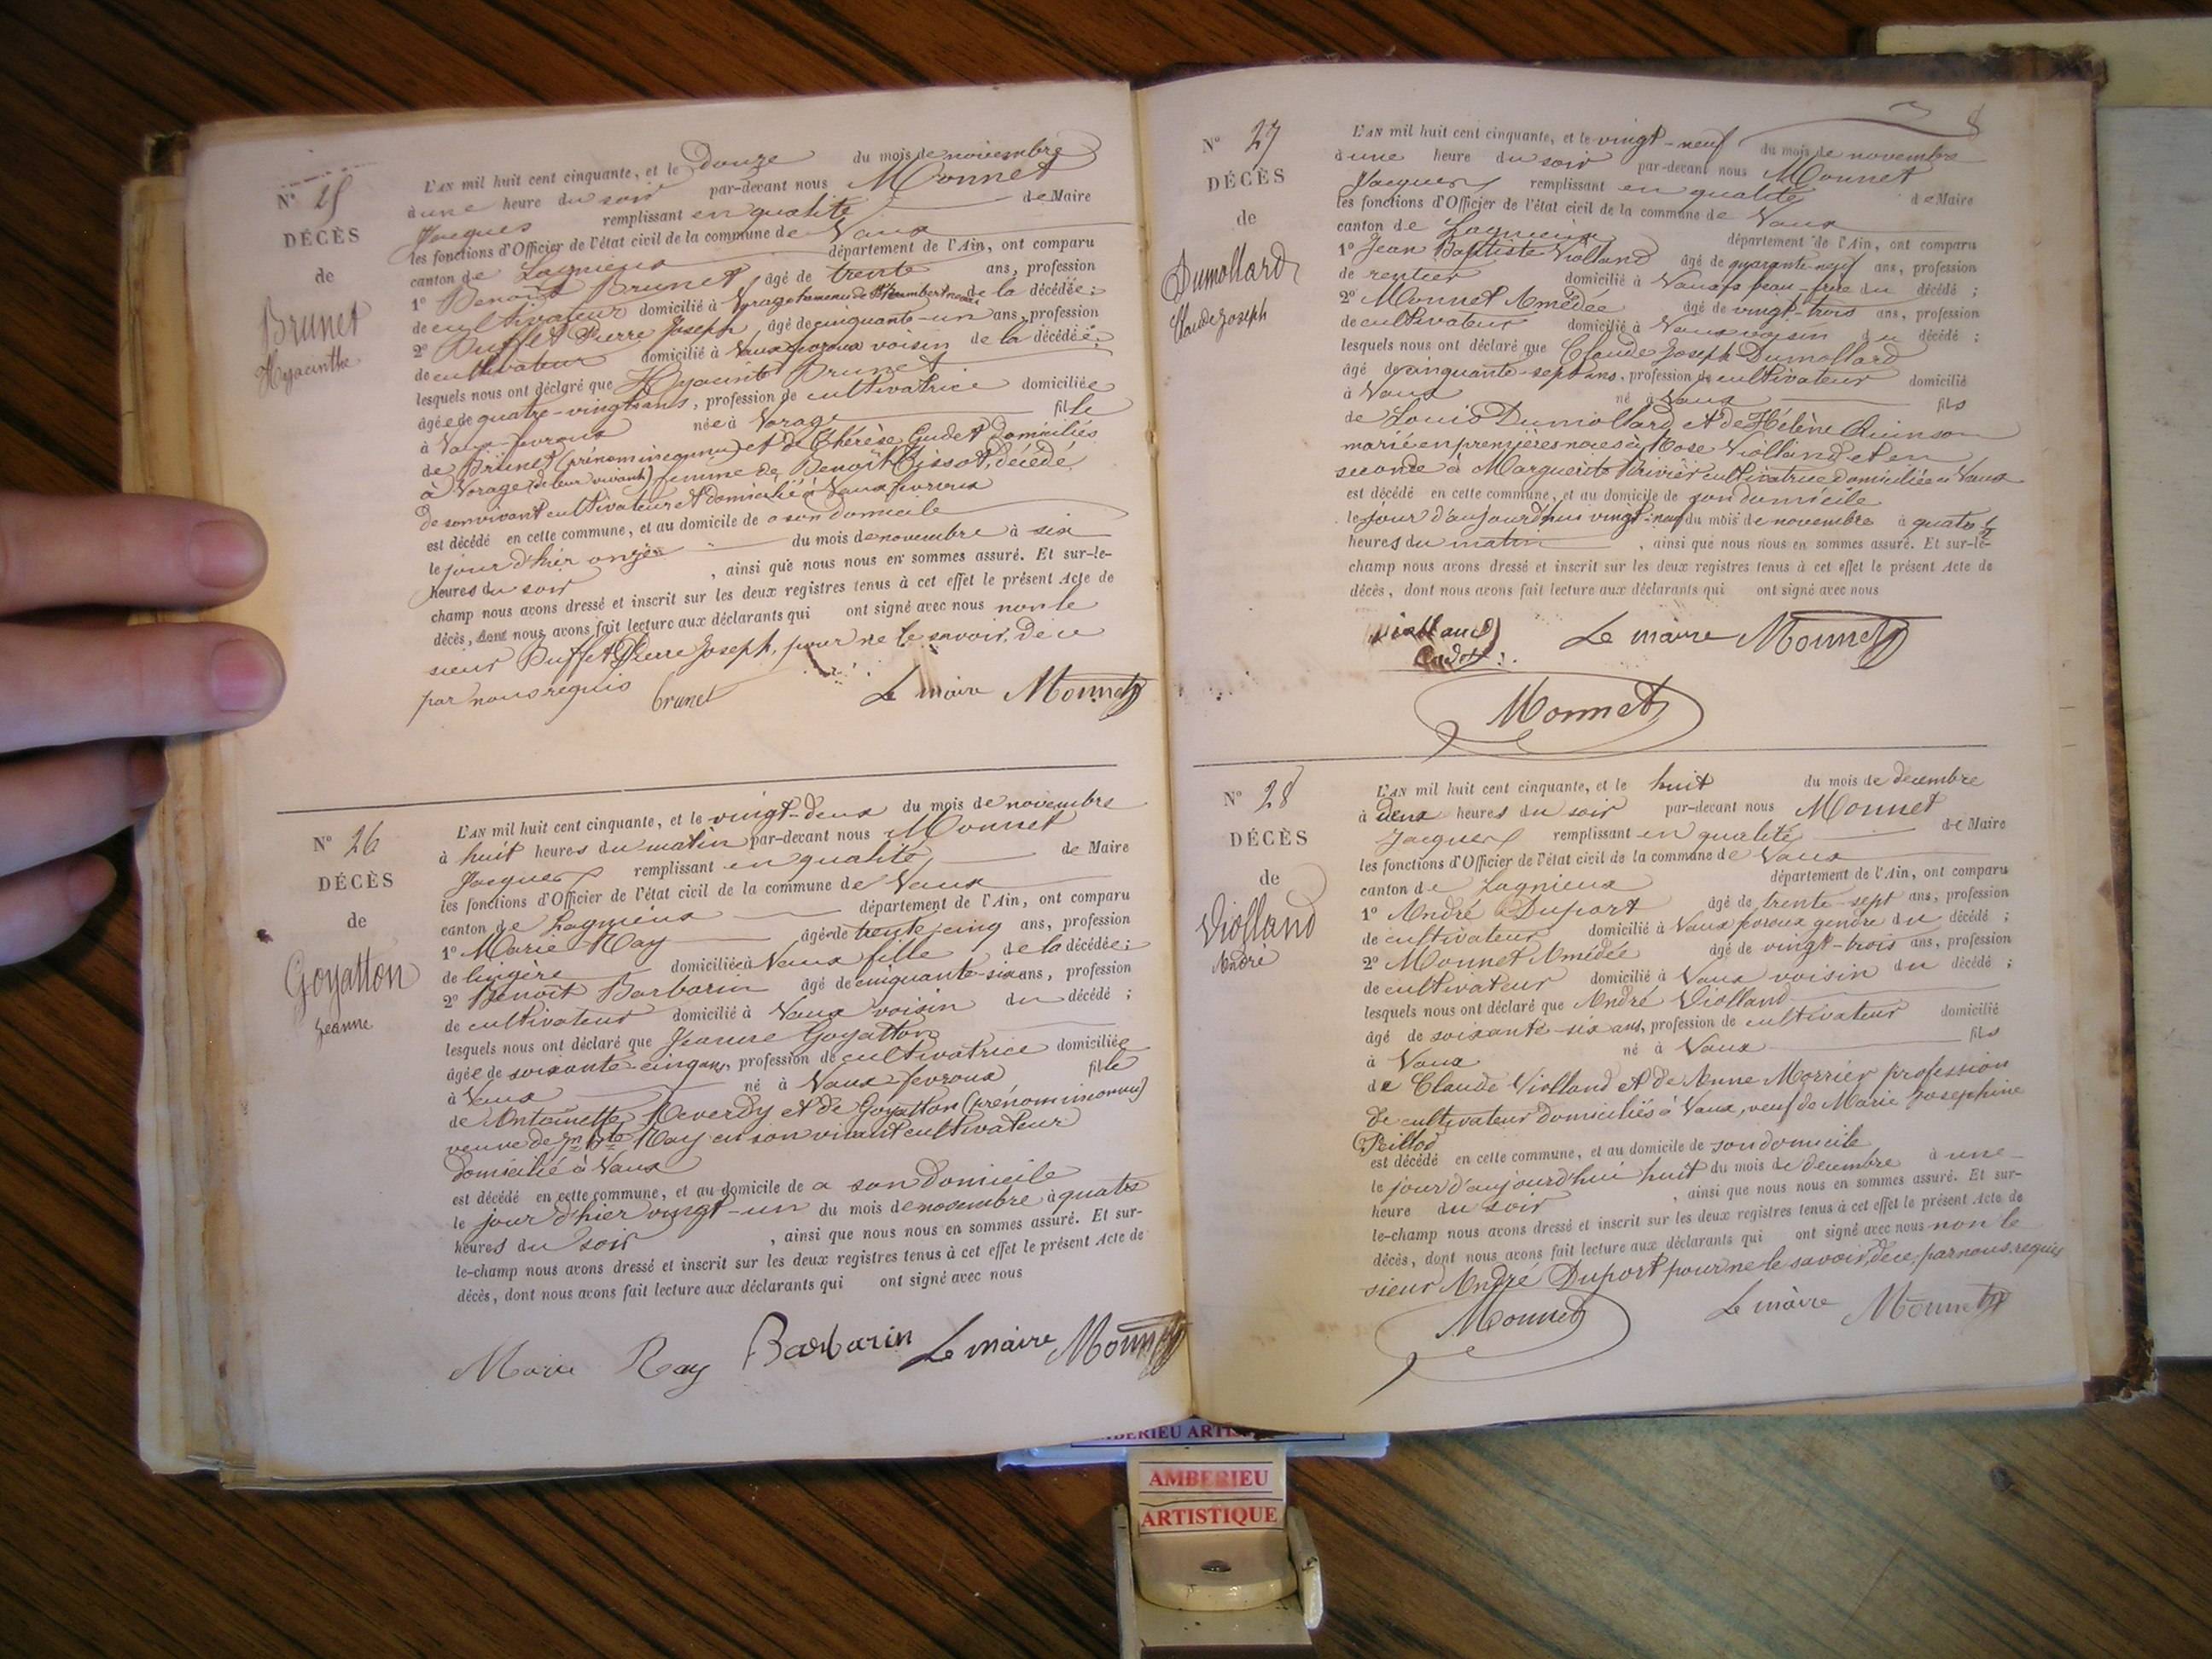 N° 25
DÉCÈS
de
Brunet
Hyacinthe
L'AN mil huit cent cinquante, et le Douze du mois de novembre
à une heure du soir par-devant nous Monnet
Jacques remplissant en qualité de Maire
les fonctions d'Officier de l'état civil de la commune de Vaux
canton de Lagnieux département de l'Ain, ont comparu
1° Benoît Brunet âgé de trente ans, profession
de cultivateur domicilié à Vorage hameau de St Rambert neveu de la décédée;
2° Buffet Pierre Joseph âgé de cinquante-un ans, profession
de cultivateur domicilié à Vaux fevroux voisin de la décédée;
lesquels nous ont déclaré que Hyacinte Brunet
âgée de quatre-vingts ans, profession de cultivatrice domiciliée
à Vaux-fevroux née à Vorage fille
de Brunet (prénom inconnu) et de Thérèse Gudet Domiciliés
à Vorage (de leur vivant) femme de Benoît Bissot, décédé
de son vivant cultivateur et domicilié à Vaux fevroux
est décédé en cette commune, et au domicile de a son domicile
le jour d'hier onze du mois de novembre à six
heures du soir, ainsi que nous nous en sommes assuré. Et sur-le-
champ nous avons dressé et inscrit sur les deux registres tenus à cet effet le présent Acte de
décès, dont nous avons fait lecture aux déclarants qui ont signé avec nous non le
sieur Buffet Pierre Joseph, pour ne le savoir, de ce
par nous requis brunet Le maire Monnet
N° 26
DÉCÈS
de
Goyatton
Jeanne
L'AN mil huit cent cinquante, et le vingt-deux du mois de novembre
à huit heures du matin par-devant nous Monnet
Jacques remplissant en qualité de Maire
les fonctions d'Officier de l'état civil de la commune de Vaux
canton de Lagnieux département de l'Ain, ont comparu
1° Marie Ray âgée de trente-cinq ans, profession
de lingère domiciliée à Vaux fille de la décédée;
2° Benoît Barbarin âgé de cinquante-six ans, profession
de cultivateur domicilié à Vaux voisin du décédé;
lesquels nous ont déclaré que Jeanne Goyatton
âgée de soixante-cinq ans, profession de cultivatrice domiciliée
à Vaux né à Vaux-fevroux fille
de Antoinette Reverdy et de Goyatton (prénom inconnu)
veuve de Jn Bte Ray en son vivant cultivateur
domicilié à Vaux
est décédé en cette commune, et au domicile de a son Domicile
le jour d'hier vingt-un du mois de novembre à quatre
heures du soir, ainsi que nous nous en sommes assuré. Et sur-
le-champ nous avons dressé et inscrit sur les deux registres tenus à cet effet le présent Acte de
décès, dont nous avons fait lecture aux déclarants qui ont signé avec nous
Marie Ray Barbarin Le maire Monnet
8
N° 27
DÉCÈS
de
Dumollard
Claude Joseph
L'AN mil huit cent cinquante, et le vingt-neuf du mois de novembre
à une heure du soir par-devant nous Monnet
Jacques remplissant en qualité de Maire
les fonctions d'Officier de l'état civil de la commune de Vaux
canton de Lagnieux département de l'Ain, ont comparu
1° Jean Baptiste Violland âgé de quarante-neuf ans, profession
de rentier domicilié à Vaux beau-frère du décédé;
2° Monnet Amédée âgé de vingt-trois ans, profession
de cultivateur domicilié à Vaux voisin du décédé;
lesquels nous ont déclaré que Claude Joseph Dumollard
âgé de cinquante-sept ans, profession de cultivateur domicilié
à Vaux né à Vaux fils
de Louis Dumollard et de Hélène Quinson
marié en premières noces à Rose Violland et en
seconde à Marguerite Rivier cultivatrice domiciliée à Vaux
est décédé en cette commune, et au domicile de son domicile
le jour d'aujourd'hui vingt-neuf du mois de novembre à quatre ½
heures du matin, ainsi que nous nous en sommes assuré. Et sur-le-
champ nous avons dressé et inscrit sur les deux registres tenus à cet effet le présent Acte de
décès, dont nous avons fait lecture aux déclarants qui ont signé avec nous
Violland Le maire Monnet
Cadet
Monnet
N° 28
DÉCÈS
de
Violland
André
L'AN mil huit cent cinquante, et le huit du mois de decembre
à deux heures du soir par-devant nous Monnet
Jacques remplissant en qualité de Maire
les fonctions d'Officier de l'état civil de la commune de Vaux
canton de Lagnieux département de l'Ain, ont comparu
1° André Duport âgé de trente-sept ans, profession
de cultivateur domicilié à Vaux fevroux gendre du décédé;
2° Monnet Amédée âgé de vingt-trois ans, profession
de cultivateur domicilié à Vaux voisin du décédé;
lesquels nous ont déclaré que André Violland
âgé de soixante-six ans, profession de cultivateur domicilié
à Vaux né à Vaux fils
de Claude Violland et de Anne Morrier profession
de cultivateur domiciliés à Vaux, veuf de Marie Josephine
Rillod
est décédé en cette commune, et au domicile de son domicile
le jour d'aujourd'hui huit du mois de decembre à une
heure du soir, ainsi que nous nous en sommes assuré. Et sur-
le-champ nous avons dressé et inscrit sur les deux registres tenus à cet effet le présent Acte de
décès, dont nous avons fait lecture aux déclarants qui ont signé avec nous non le
sieur André Duport pour ne le savoir, de ce par nous requis
Monnet Le maire Monnet
AMBERIEU ARTIS
AMBERIEU
ARTISTIQUE